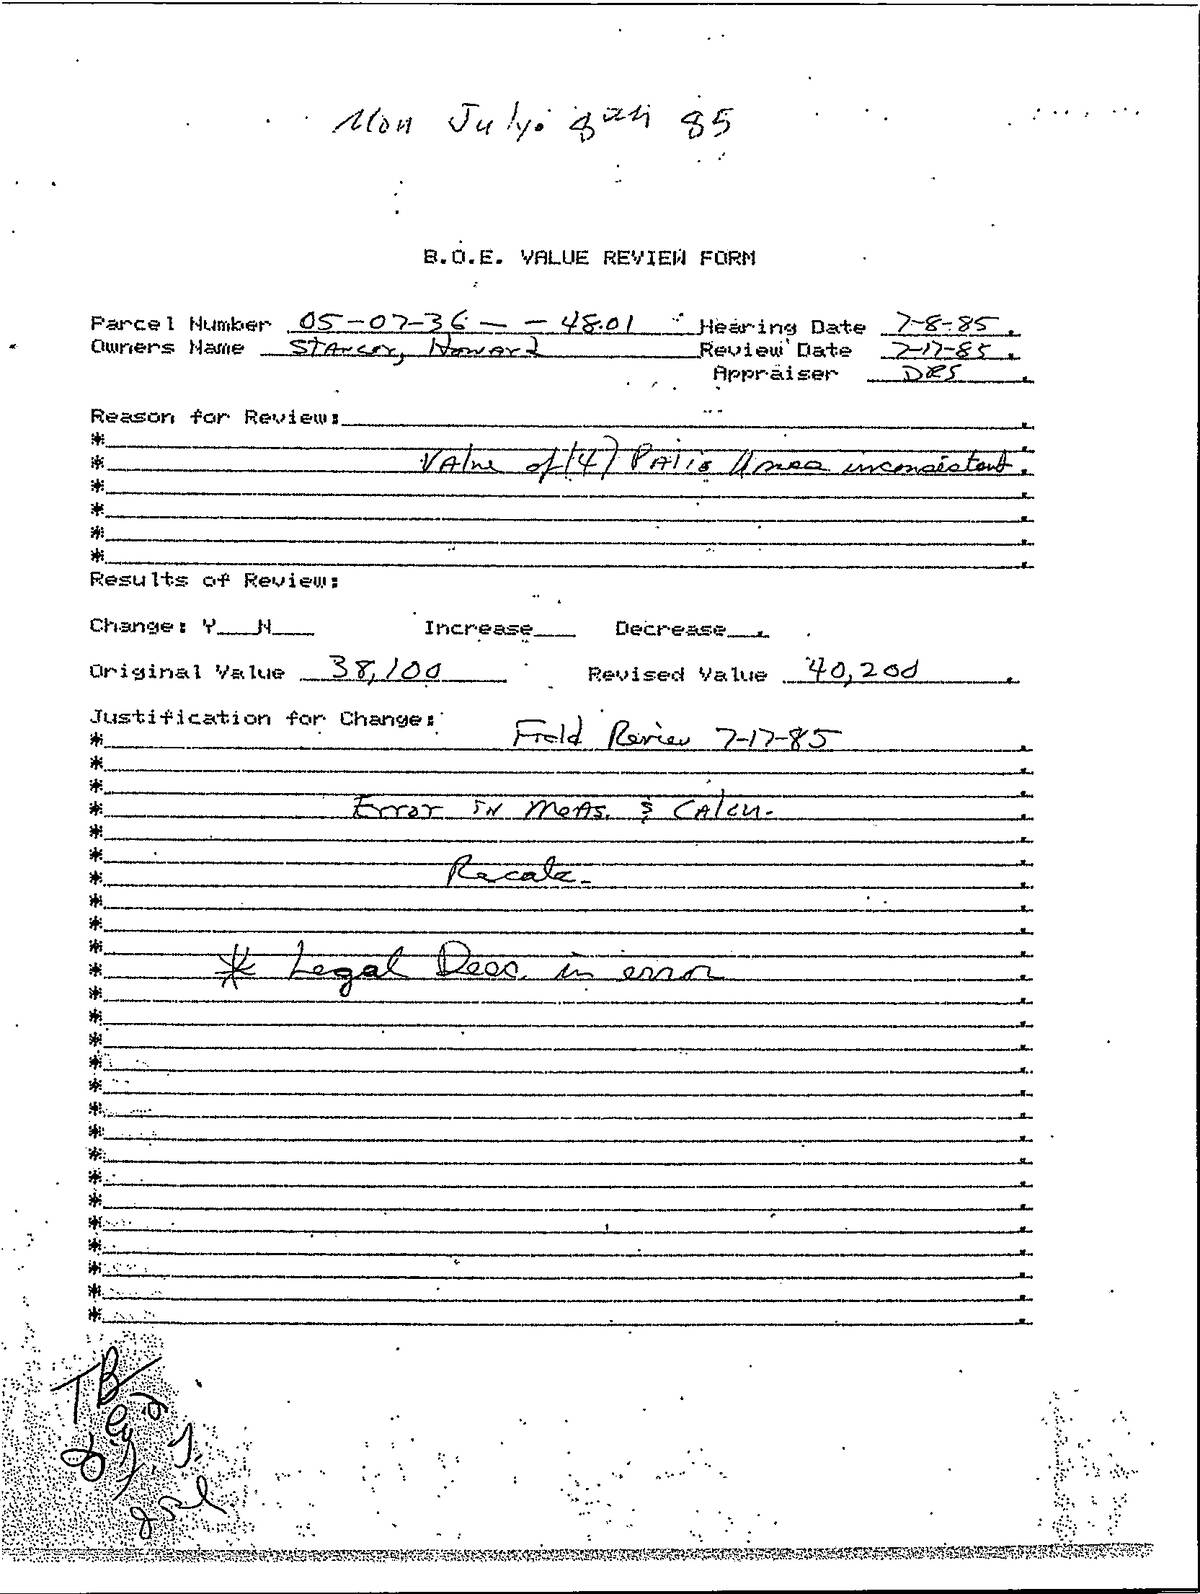 Mon July 8th 85
B.O.E. VALUE REVIEW FORM
Parcel Number 05-07-36 — - 48.01 Hearing Date 7-8-85
Owners Name Howard Review Date 7-17-85
Appraiser DRS
Reason for Review:
*
* Value of (4) Patio Areas inconsistent
*
*
*
*
Results of Review:
Change: Y___N___ Increase___ Decrease___
Original Value 38,100 Revised Value 40,200
Justification for Change:
* Field Review 7-17-85
*
*
* Error in Meas. & Calcu.
*
*
* Recalc.
*
*
*
* * Legal Desc. in error
*
*
*
*
*
*
*
*
*
*
*
*
*
*
*
TB